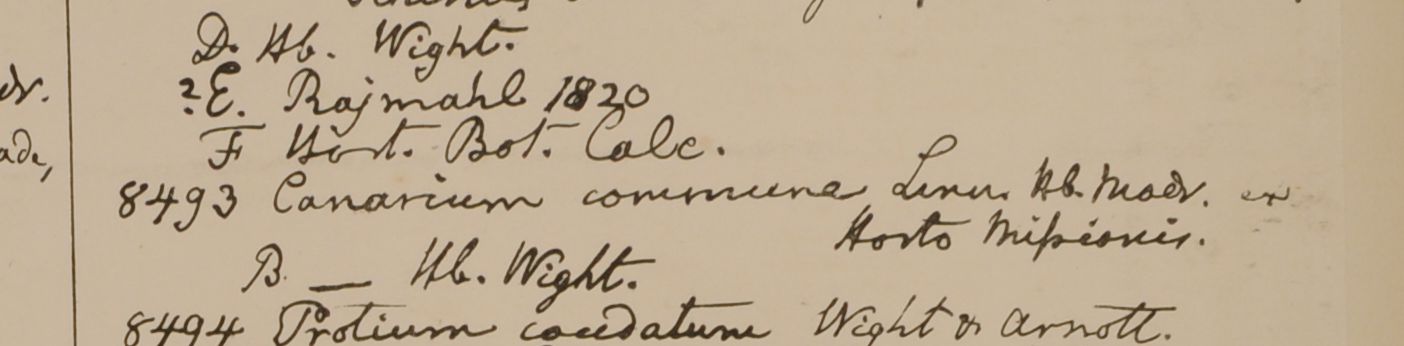 D. Hb. Wight.
dr. ?E. Rajmahl 1820
F Hort. Bot. Calc.
ade,
8493 Canarium commune Linn. Hb. Madr. ex
Horto Missionis.
B — Hb. Wight.
8494 Protium caudatum Wight & Arnott.